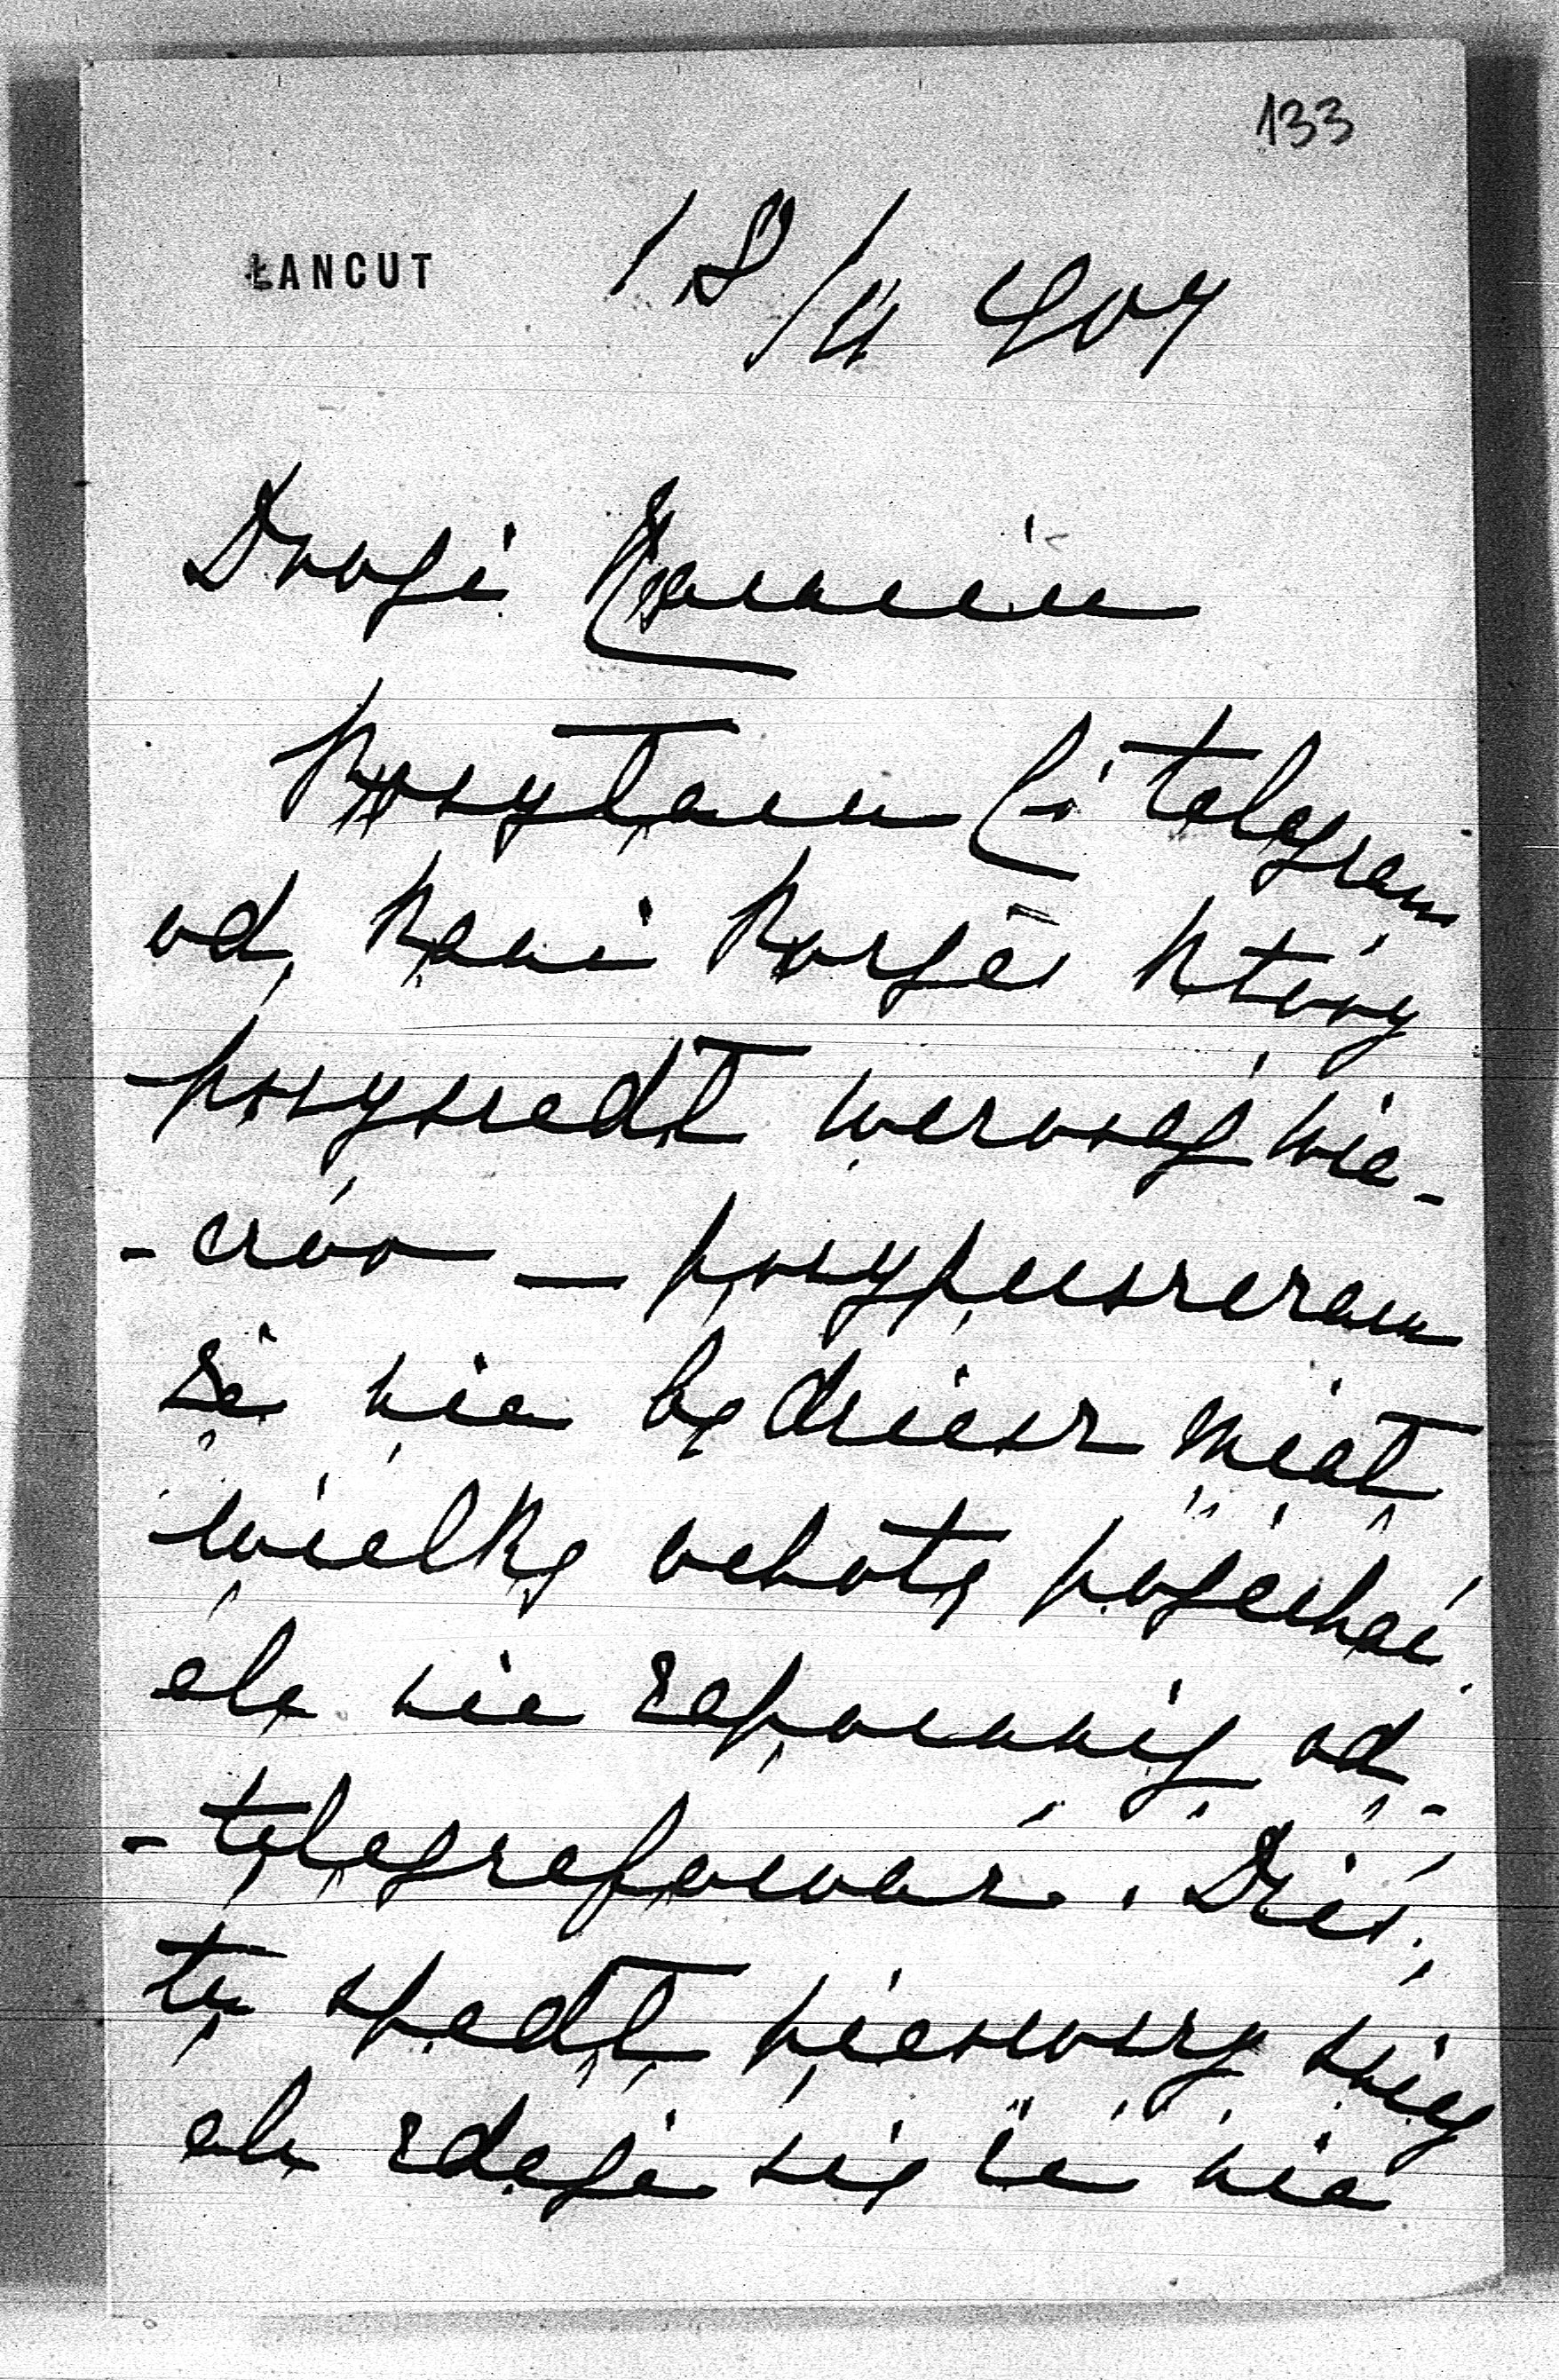 133
ŁANCUT 18/11 907
Drogi
Przsyłam Ci telegram
od Pani który
przyszedł wczoraj wie-
-czór — przypuszczam
że nie będziesz miał
wielką ochotę pojechać
ale nie zapomnij od-
-telegrafować. Dziś
tu spadł pierwszy śnieg
ale zdaje się że nie